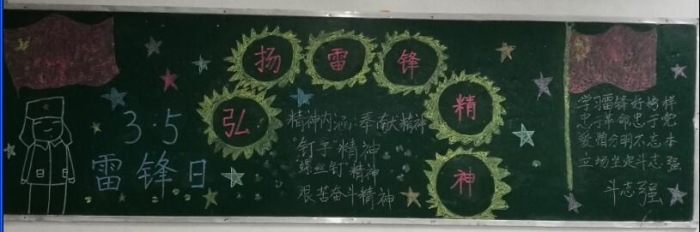 弘扬雷锋精神
3·5
雷锋日
精神内涵:奉献大精神
钉子精神
螺丝钉精神
艰苦奋斗精神
学习雷锋好榜样
忠于革命忠于党
爱憎分明不忘本
立场坚定斗志强
斗志强